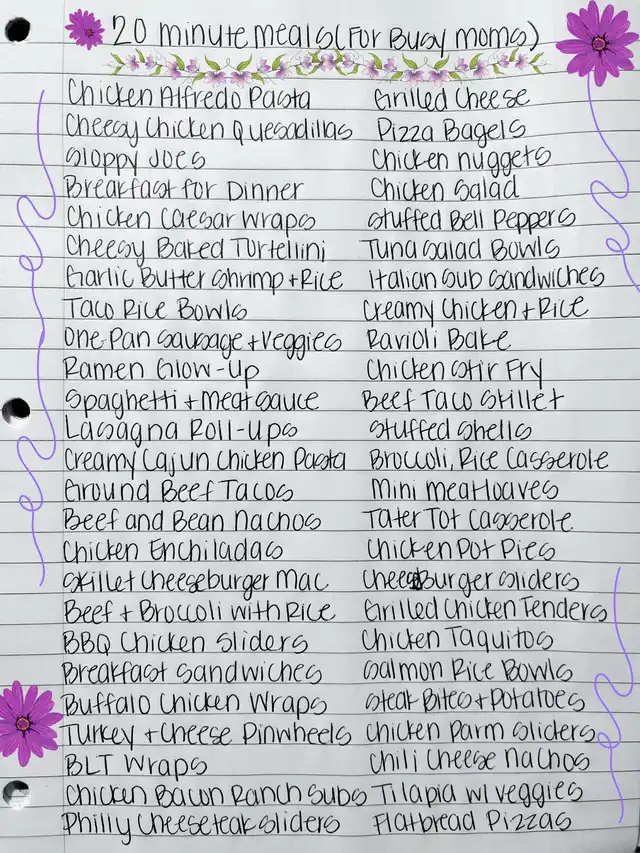 20 minute meals (For Busy moms)
Chicken Alfredo Pasta
Cheesy Chicken Quesadillas
Sloppy Joes
Breakfast for Dinner
Chicken Caesar Wraps
Cheesy Baked Tortellini
Garlic Butter Shrimp + Rice
Taco Rice Bowls
One-Pan Sausage + Veggies
Ramen Glow-Up
Spaghetti + Meat Sauce
Lasagna Roll-Ups
Creamy Cajun Chicken Pasta
Ground Beef Tacos
Beef and Bean Nachos
Chicken Enchiladas
Skillet Cheeseburger Mac
Beef + Broccoli with Rice
BBQ Chicken Sliders
Breakfast Sandwiches
Buffalo Chicken Wraps
Turkey + Cheese Pinwheels
BLT Wraps
Chicken Bacon Ranch Subs
Philly Cheesesteak Sliders
Grilled Cheese
Pizza Bagels
Chicken nuggets
Chicken Salad
Stuffed Bell Peppers
Tuna Salad Bowls
Italian Sub Sandwiches
Creamy Chicken + Rice
Ravioli Bake
Chicken Stir Fry
Beef Taco Skillet
Stuffed Shells
Broccoli, Rice Casserole
Mini meatloaves
Tater Tot Casserole
Chicken Pot Pies
CheeseBurger Sliders
Grilled Chicken Tenders
Chicken Taquitos
Salmon Rice Bowls
Steak Bites + Potatoes
Chicken Parm Sliders
Chili Cheese Nachos
Tilapia w/ veggies
Flatbread Pizzas